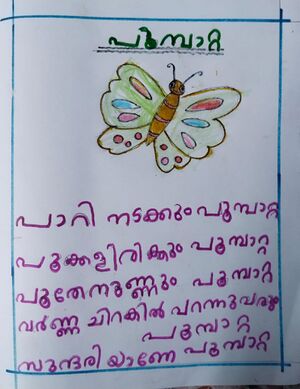 പൂമ്പാറ്റ
പാറി നടക്കും പൂമ്പാറ്റ
പൂക്കളിരിക്കും പൂമ്പാറ്റ
പൂതേനുണ്ണും പൂമ്പാറ്റ
വർണ്ണ ചിറകിൽ പറന്നുവരും
പൂമ്പാറ്റ
സുന്ദരിയാണേ പൂമ്പാറ്റ